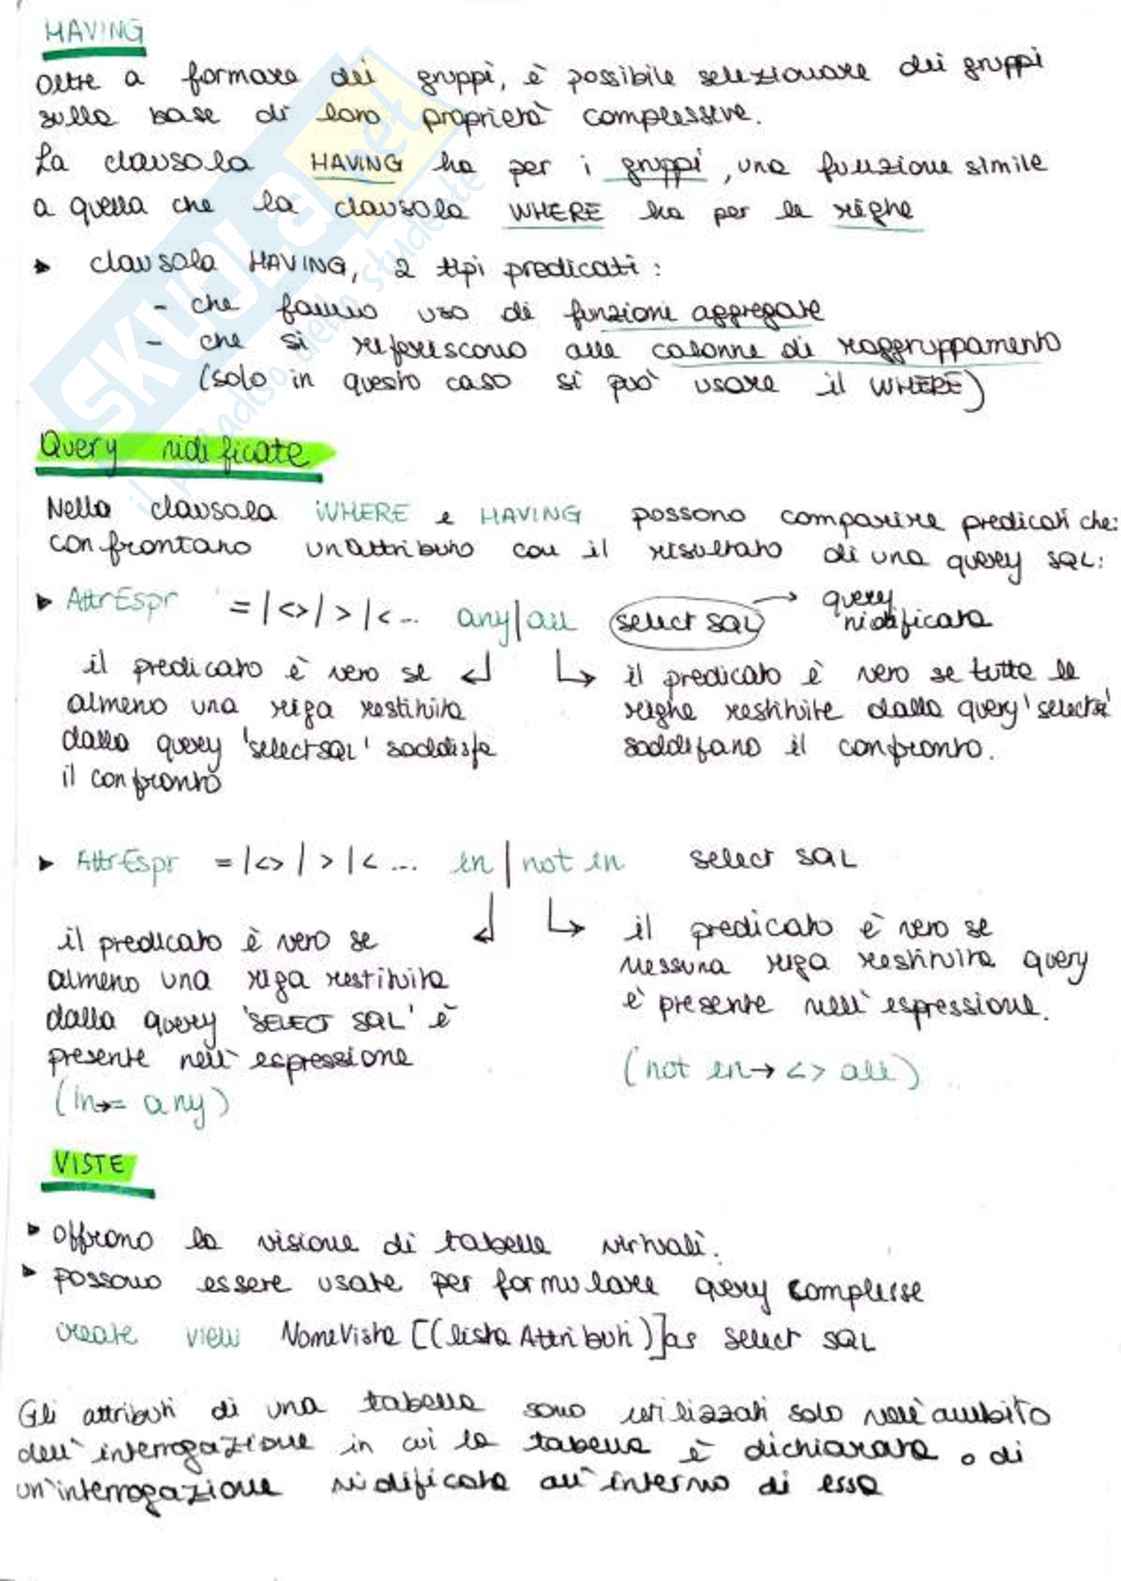 HAVING
Oltre a formare dei gruppi, è possibile selezionare dei gruppi
sulla base di loro proprietà complessive.
La clausola HAVING ha per i gruppi, una funzione simile
a quella che la clausola WHERE ha per le righe
▸ clausola HAVING, 2 tipi predicati:
- che fanno uso di funzioni aggregate
- che si riferiscono alle colonne di raggruppamento
(solo in questo caso si può usare il WHERE)
Query nidificate
Nella clausola WHERE e HAVING possono comparire predicati che:
confrontano un attributo con il risultato di una query SQL:
▸ AttrEspr =|<>|>|<... any|all select SQL → query
nidificata
il predicato è vero se
almeno una riga restituita
dalla query 'select SQL' soddisfa
il confronto
il predicato è vero se tutte le
righe restituite dalla query 'select'
soddifano il confronto.
▸ AttrEspr =|<>|>|<... in|not in select SQL
il predicato è vero se
almeno una riga restituita
dalla query 'SELECT SQL' è
presente nell'espressione
(In→= any)
il predicato è vero se
nessuna riga restituita query
è presente nell'espressione.
(not in→<> all)
VISTE
▸ offrono la visione di tabelle virtuali.
▸ possono essere usate per formulare query complesse
create view NomeVista [(lista Attributi)] as select SQL
Gli attributi di una tabella sono utilizzati solo nell'ambito
dell'interrogazione in cui la tabella è dichiarata o di
un'interrogazione nidificata all'interno di essa
SKUOLA.net
il paradiso dello studente